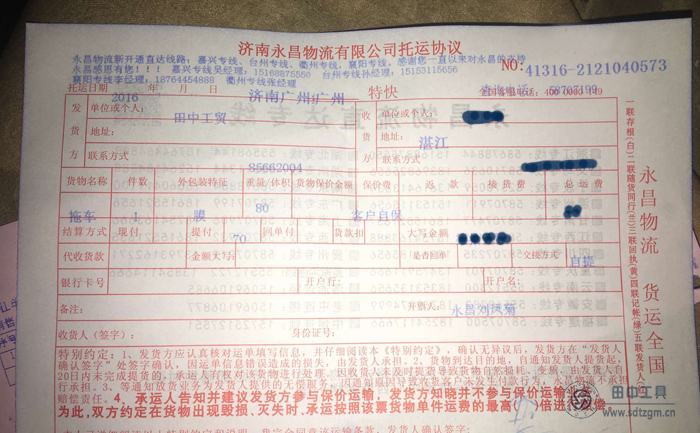 济南永昌物流有限公司托运协议
永昌物流新开通直达线路：嘉兴专线、台州专线、衢州专线，襄阳专线，感谢您一直以来对永昌的支持
永昌感恩有您！！！ 嘉兴专线吴经理：15168875550 台州专线孙经理：15153115656
襄阳专线李经理：18764454888 衢州专线张经理
NO: 41316-2121040573
托运日期 2016 年 月 日 济南广州|广州 特快
58707199
发货方 单位或个人： 田中工贸
收货方 单位或个人：
地址：
地址： 湛江
联系方式 85662004
联系方式：
货物名称 件数 外包装特征 重量/体积 货物保价金额 保价费 返款 接货费 总运费
拖车 1 膜 80 客户自保
结算方式 现付 提付 70 回单付 货款扣 大写金额
代收货款 金额大写： 是否回单 交接方式 自提
银行卡号 开户行： 开户名：
备注： 开票人： 永昌刘凤菊
收货人（签字）： 身份证号：
特别约定：1、发货方应认真核对运单填写信息，并仔细阅读本《特别约定》，确认无异议后，发货方在"发货人
确认签字"处签字确认，因运单信息错误造成的损失，由发货方承担。2、货物到达目的地，自通知发货人提货起，
20日内未完成提货的，承运人有权对该货物进行处理。
行承担。3、等通知放货业务为发货人提供的无偿服务，
赔偿责任。4、承运人告知并建议发货方参与保价运输，发货方知晓并不参与保价运输
为此，双方约定在货物出现毁损、灭失时，承运按照该票货物单件运费的最高 倍进行赔偿
一联存根(白)二联随货同行(兰)三联回执(黄)四联记帐(绿)五联发货人
永昌物流 货运全国
田中工具
www.sdtzgm.cn